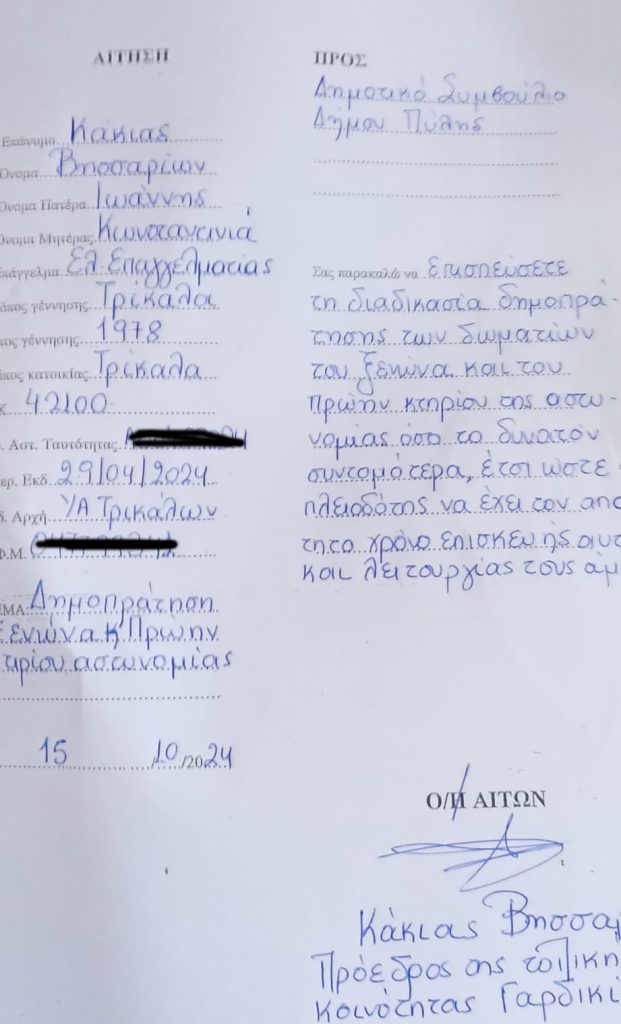 ΑΙΤΗΣΗ
Επώνυμο Κάκιας
Όνομα Βησσαρίων
Όνομα Πατέρα Ιωάννης
Όνομα Μητέρας Κωνσταντινιά
Επάγγελμα Ελ. Επαγγελματίας
όπος γέννησης Τρίκαλα
ος γέννησης 1978
όπος κατοικίας Τρίκαλα
Κ 42100
. Αστ. Ταυτότητας
ερ. Εκδ. 29/04/2024
δ. Αρχή ΥΑ Τρικάλων
Φ.Μ.
ΕΜΑ: Δημοπράτηση
Ξενώνα κ Πρώην
τιρίου αστυνομίας
15 /10/2024
ΠΡΟΣ
Δημοτικό Συμβούλιο
Δήμου Πύλης
Σας παρακαλώ να επισπεύσετε
τη διαδικασία δημοπρά-
τησης των δωματίων
του ξενώνα και του
πρώην κτηρίου της αστυ-
νομίας όσο το δυνατόν
συντομότερα, έτσι ώστε ο
πλειοδότης να έχει τον απα
τητο χρόνο επισκευής αυτ
και λειτουργίας τους άμ
Ο/Η ΑΙΤΩΝ
Κάκιας Βησσα
Πρόεδρος της τοπικη
Κοινότητας Γαρδικί